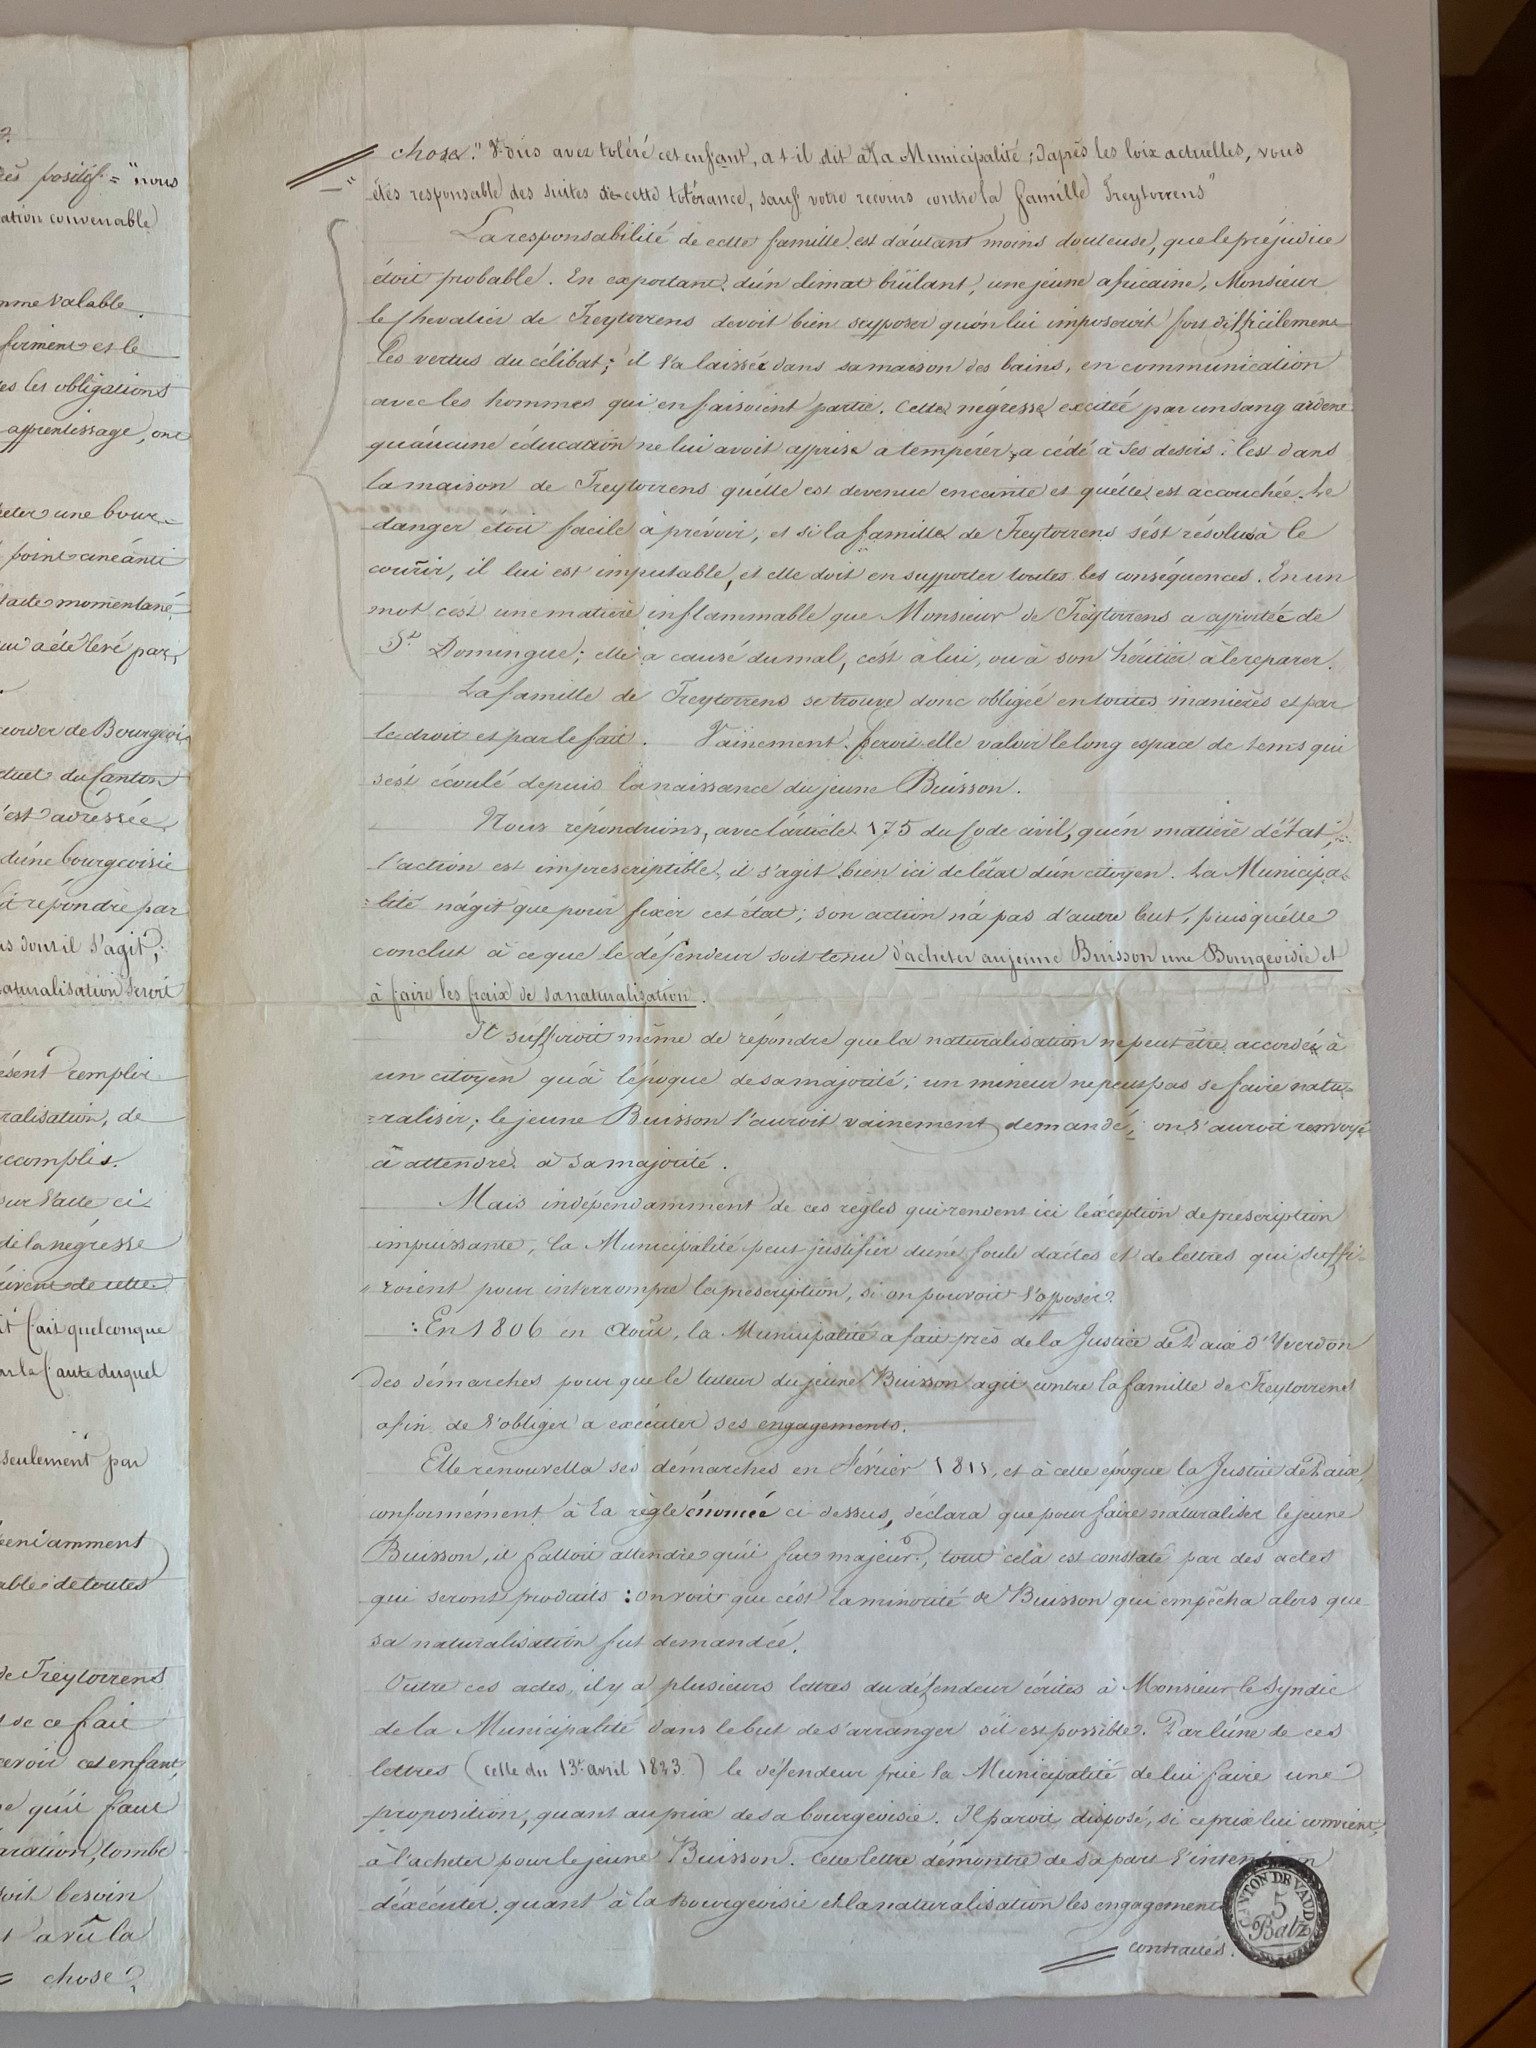 dès positif = "nous
ation convenable
nme valable.
firment et le
es les obligations
apprentissage, ont
eter une bour-
point anéanti
tacite momentané
ui a été levé par
corder de Bourgeoi-
duet du Canton
s'est adressée
d'une bourgeoisie
répondre par
ns dont il s'agit;
naturalisation seroit
ésent remplir
ralisation, de
accomplis.
sur l'acte ci-
de la négresse
rivent de cette
it fait quelconque
ar la faute duquel
seulement par
pendamment
able de toutes
de Treytorrens
de ce fait
cevoir cet enfant,
e qu'il faut
aration, tombe
oit besoin
t a vû la
= chose
chose." Vous avez toléré cet enfant, a t-il dit à la Municipalité; d'après les loix actuelles, vous
êtes responsable des suites de cette tolérance, sauf votre recours contre la famille Treytorrens"
La responsabilité de cette famille est d'autant moins douteuse, que le préjudice
étoit probable. En exportant d'un climat brûlant, une jeune africaine, Monsieur
le Chevalier de Treytorrens devoit bien supposer qu'on lui imposeroit fort difficilement
les vertus du célibat; il l'a laissée dans sa maison des bains, en communication
avec les hommes qui en faisoient partie. Cette négresse excitée par un sang ardent
qu'aucune éducation ne lui avoit apprise a tempérer, a cédé à ses desirs: c'est dans
la maison de Treytorrens qu'elle est devenue enceinte et qu'elle est accouchée. Le
danger étoit facile à prévoir, et si la famille de Treytorrens s'est résolue à le
courir, il lui est imputable, et elle doit en supporter toutes les conséquences. En un
mot c'est une matière inflammable que Monsieur de Treytorrens a apportée de
St Domingue; elle a causé du mal, c'est à lui, ou à son héritier à le reparer.
La famille de Treytorrens se trouve donc obligée en toutes manières et par
le droit et par le fait. Vainement feroit-elle valoir le long espace de tems qui
s'est écoulé depuis la naissance du jeune Buisson.
Nous répondrions, avec l'article 175 du Code civil, qu'en matière d'état,
l'action est imprescriptible, il s'agit bien ici de l'état d'un citoyen. La Municipa-
=lité n'agit que pour fixer cet état; son action n'a pas d'autre but, puisqu'elle
conclut à ce que le défendeur soit tenu d'acheter au jeune Buisson une Bourgeoisie et
à faire les fraix de sa naturalisation.
Il suffiroit même de répondre que la naturalisation ne peut être accordée à
un citoyen qu'à l'époque de sa majorité; un mineur ne peut pas se faire natu-
=raliser; le jeune Buisson l'auroit vainement demandé; on l'auroit renvoyé
à attendre à sa majorité.
Mais indépendamment de ces règles qui rendent ici l'exception de préscription
impuissante, la Municipalité peut justifier d'une foule d'actes et de lettres qui suffi-
=roient pour interrompre la prescription, si on pouvoit l'opposer.
En 1806 en Août, la Municipalité a fait près de la Justice de Paix d'Yverdon
des démarches pour que le tuteur du jeune Buisson agit contre la famille de Treytorrens
afin de l'obliger a exécuter ses engagements.
Elle renouvella ses démarches en Février 1811, et à cette époque la Justice de Paix,
conformément à la règle énoncée ci dessus, déclara que pour faire naturaliser le jeune
Buisson, il falloit attendre qu'il fut majeur, tout celà est constaté par des actes
qui seront produits: on voit que c'est la minorité de Buisson qui empêcha alors que
sa naturalisation fut demandée.
Outre ces actes, il y a plusieurs lettres du défendeur écrites à Monsieur le Syndic
de la Municipalité dans le but de s'arranger s'il est possible. Par l'une de ces
lettres (celle du 13e avril 1823.) le défendeur prie la Municipalité de lui faire une
proposition, quant au prix de sa bourgeoisie. Il paroit disposé, si ce prix lui convient,
à l'acheter pour le jeune Buisson. Cette lettre démontre de sa part l'intention
d'exécuter quant à la Bourgeoisie et la naturalisation les engagements
contractés.
CANTON DE VAUD
5
Batz